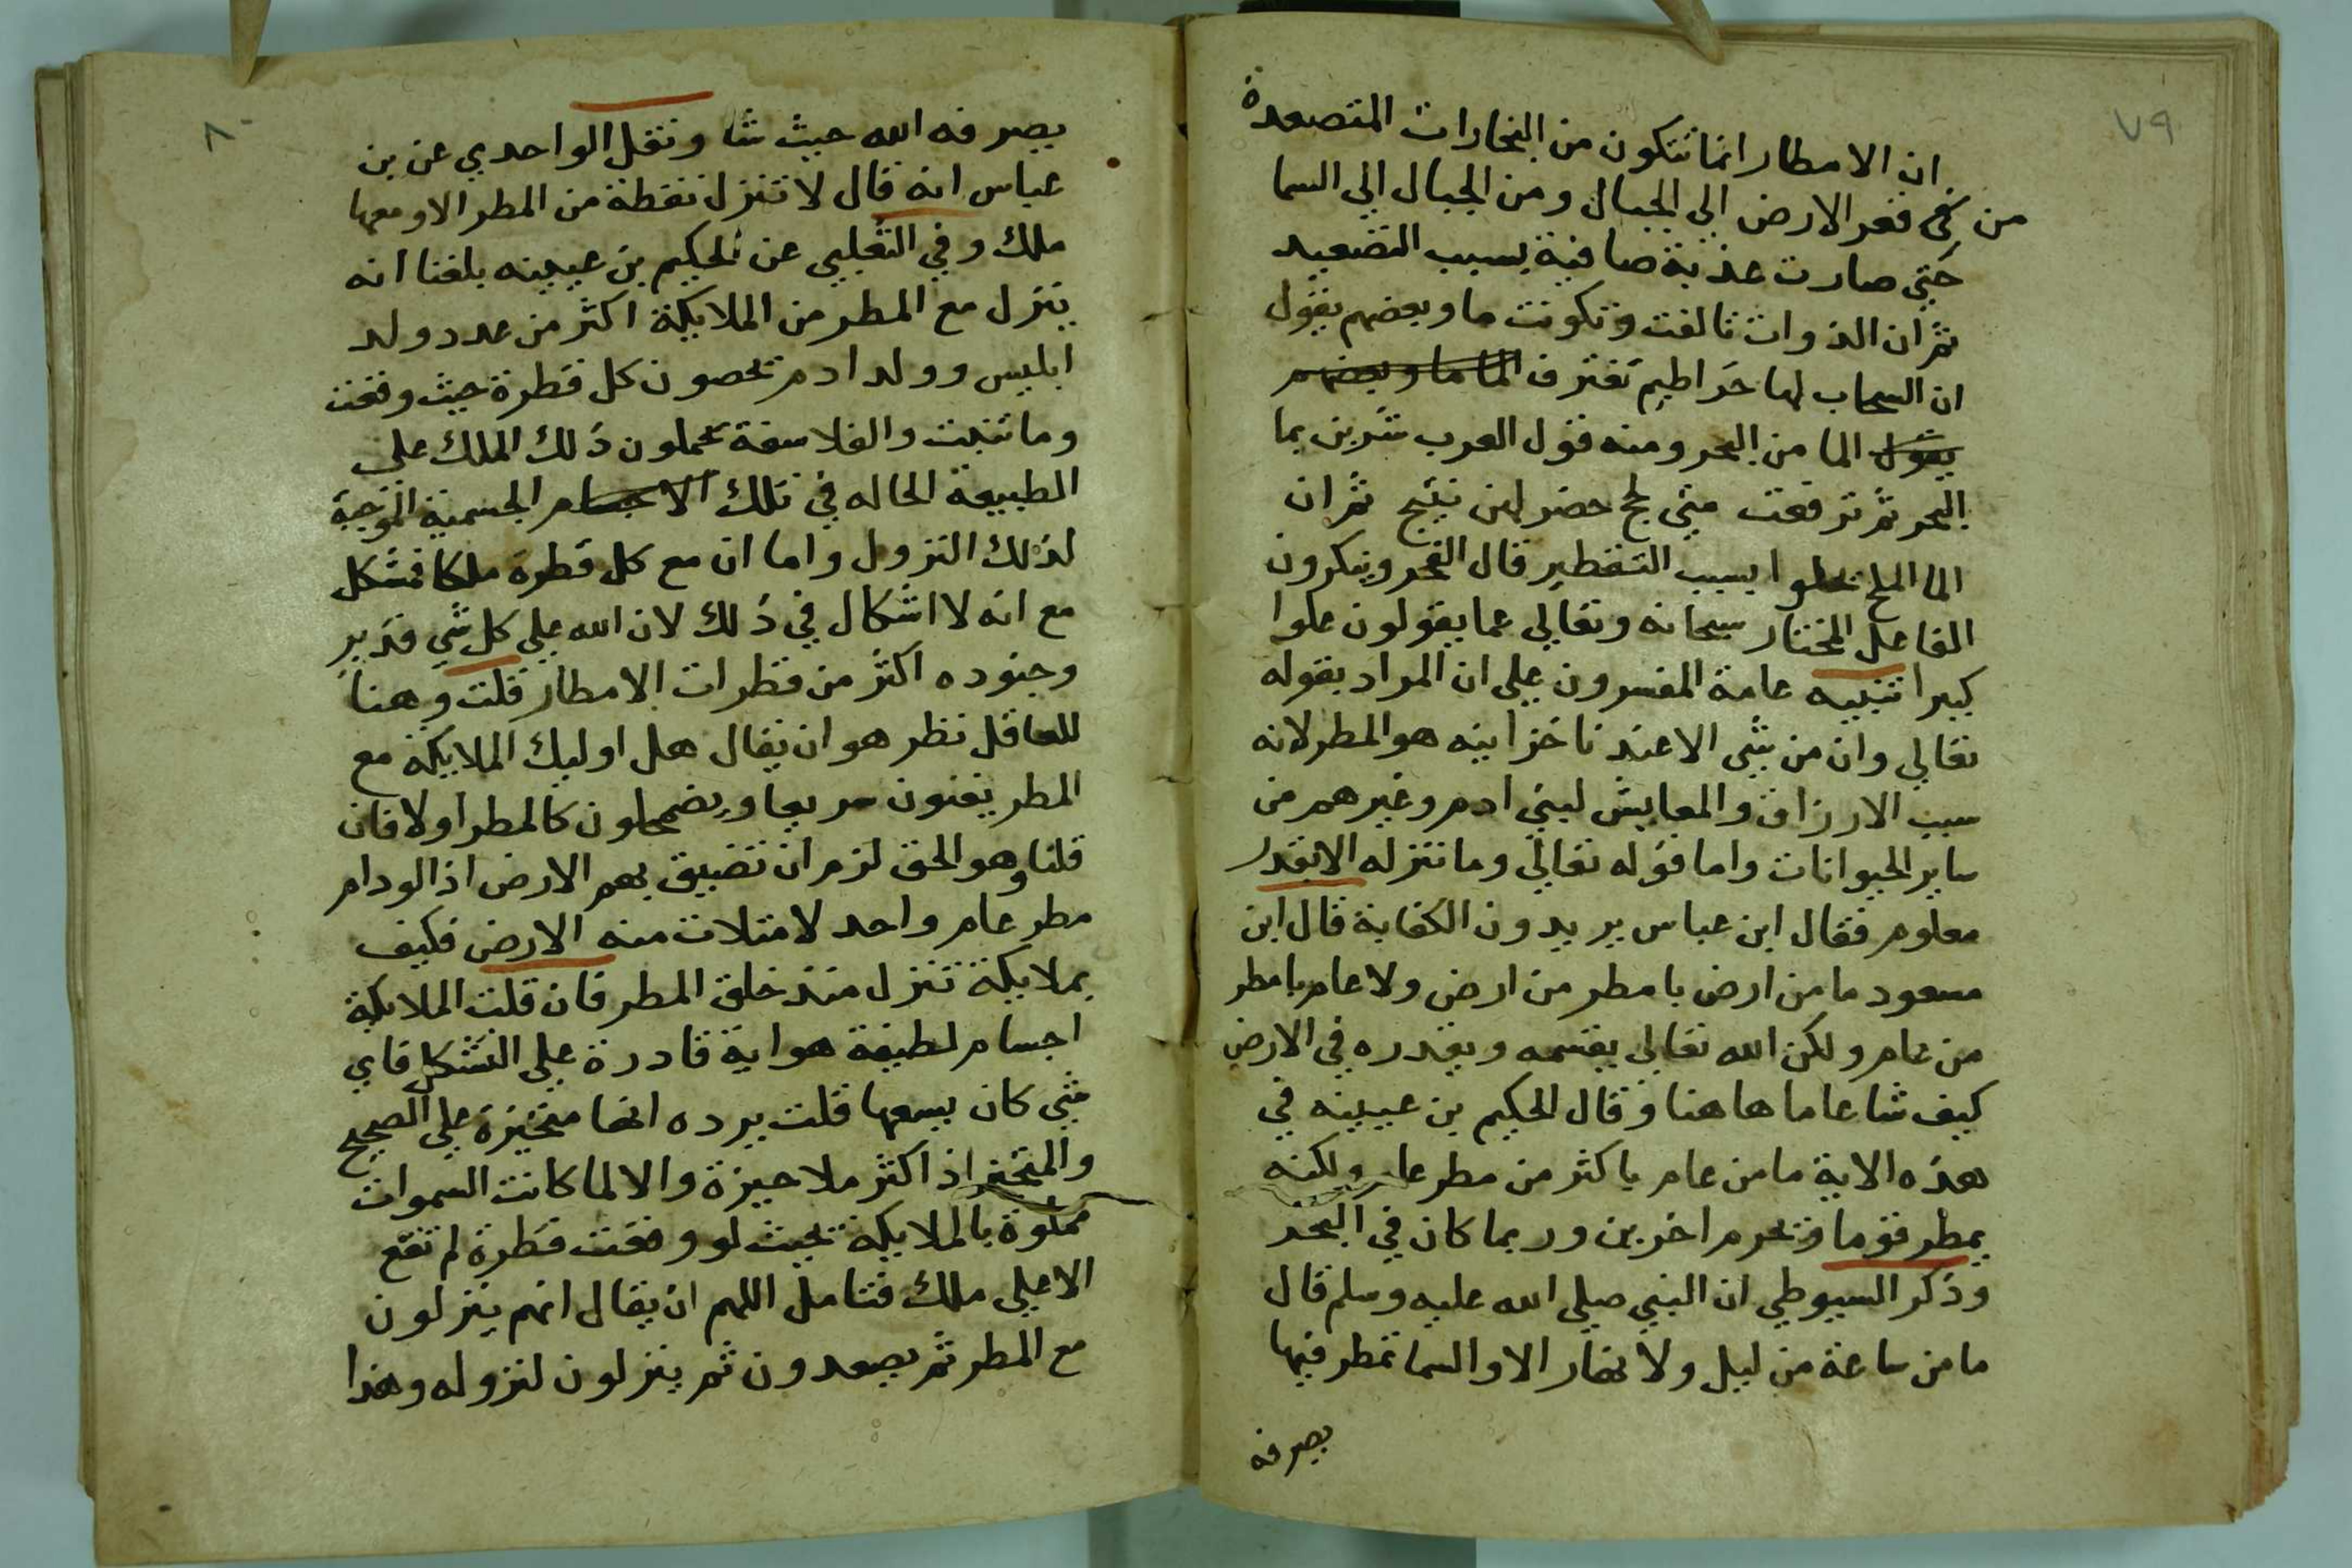 ٧٩
ان الامطار انما تتكون من البخارات المتصعدة
من قعر الارض الى الجبال ومن الجبال الي السما
حتي صارت عذبة صافية بسبب التصعيد
ثم ان الذوات تالفت وتكونت ما وبعضهم يقول
ان السحاب لها خراطيم تغترف الما ما وبعضهم
يقول الما من البحر ومنه قول العرب شربن بما
البحر ثم ترفعت متي لجج خضر لهن نييج ثم ان
الما الملح يحلوا بسبب التقطير قال الفخر وينكرون
الفاعل المختار سبحانه وتعالي عما يقولون علوا
كبيرا تنبيه عامة المفسرون علي ان المراد بقوله
تعالي وان من شي الا عندنا خزاينه هو المطر لانه
سبب الارزاق والمعايش لبني ادم وغيرهم من
ساير الحيوانات واما قوله تعالي وما ننزله الا بقدر
معلوم فقال ابن عباس يريدون الكفاية قال ابن
مسعود ما من ارض بامطر من ارض ولا عام بامطر
من عام ولكن الله تعالي يقسمه ويقدره في الارض
كيف شا عاما هاهنا وقال الحكيم بن عيينه في
هذه الاية ما من عام باكثر من مطر عام ولكنه
يمطر قوما وتحرم اخرين وربما كان في البحر
وذكر السيوطي ان النبي صلي الله عليه وسلم قال
ما من ساعة من ليل ولا نهار الا والسما تمطر فيها
يصرفه
٨٠
يصرفه الله حيث شا ونقل الواحدي عن بن
عباس انه قال لا تنزل نقطة من المطر الا ومعها
ملك وفي الثعلبي عن الحكيم بن عيينه بلغنا انه
ينزل مع المطر من الملايكة اكثر من عدد ولد
ابليس وولد ادم يحصون كل قطرة حيث وقعت
وما تنبت والفلاسفة يحملون ذلك الملك علي
الطبيعة الحاله في تلك الاجسام الجسمية الموجبة
لذلك النزول واما ان مع كل قطرة ملكا فمشكل
مع انه لا اشكال في ذلك لان الله علي كل شي قدير
وجنوده اكثر من قطرات الامطار قلت وهنا
للعاقل نظر هو ان يقال هل اوليك الملايكة مع
المطر يفنون سريعا ويضمحلون كالمطر اولا فان
قلنا وهو الحق لزم ان تضيق بهم الارض اذ الودام
مطر عام واحد لامتلات منه الارض فكيف
بملايكة تنزل منذ خلق المطر فان قلت الملايكة
اجسام لطيفة هواية قادرة علي التشكل فاي
شي كان يسعها قلت يرده انها متحيزة علي الصحيح
والمتحيز اذ اكثر ملا حيزة والا لما كانت السموات
مملوة بالملايكة بحيث لو وقعت قطرة لم تقع
الا علي ملك فتامل اللهم ان يقال انهم ينزلون
مع المطر ثم يصعدون ثم ينزلون لنزوله وهذا